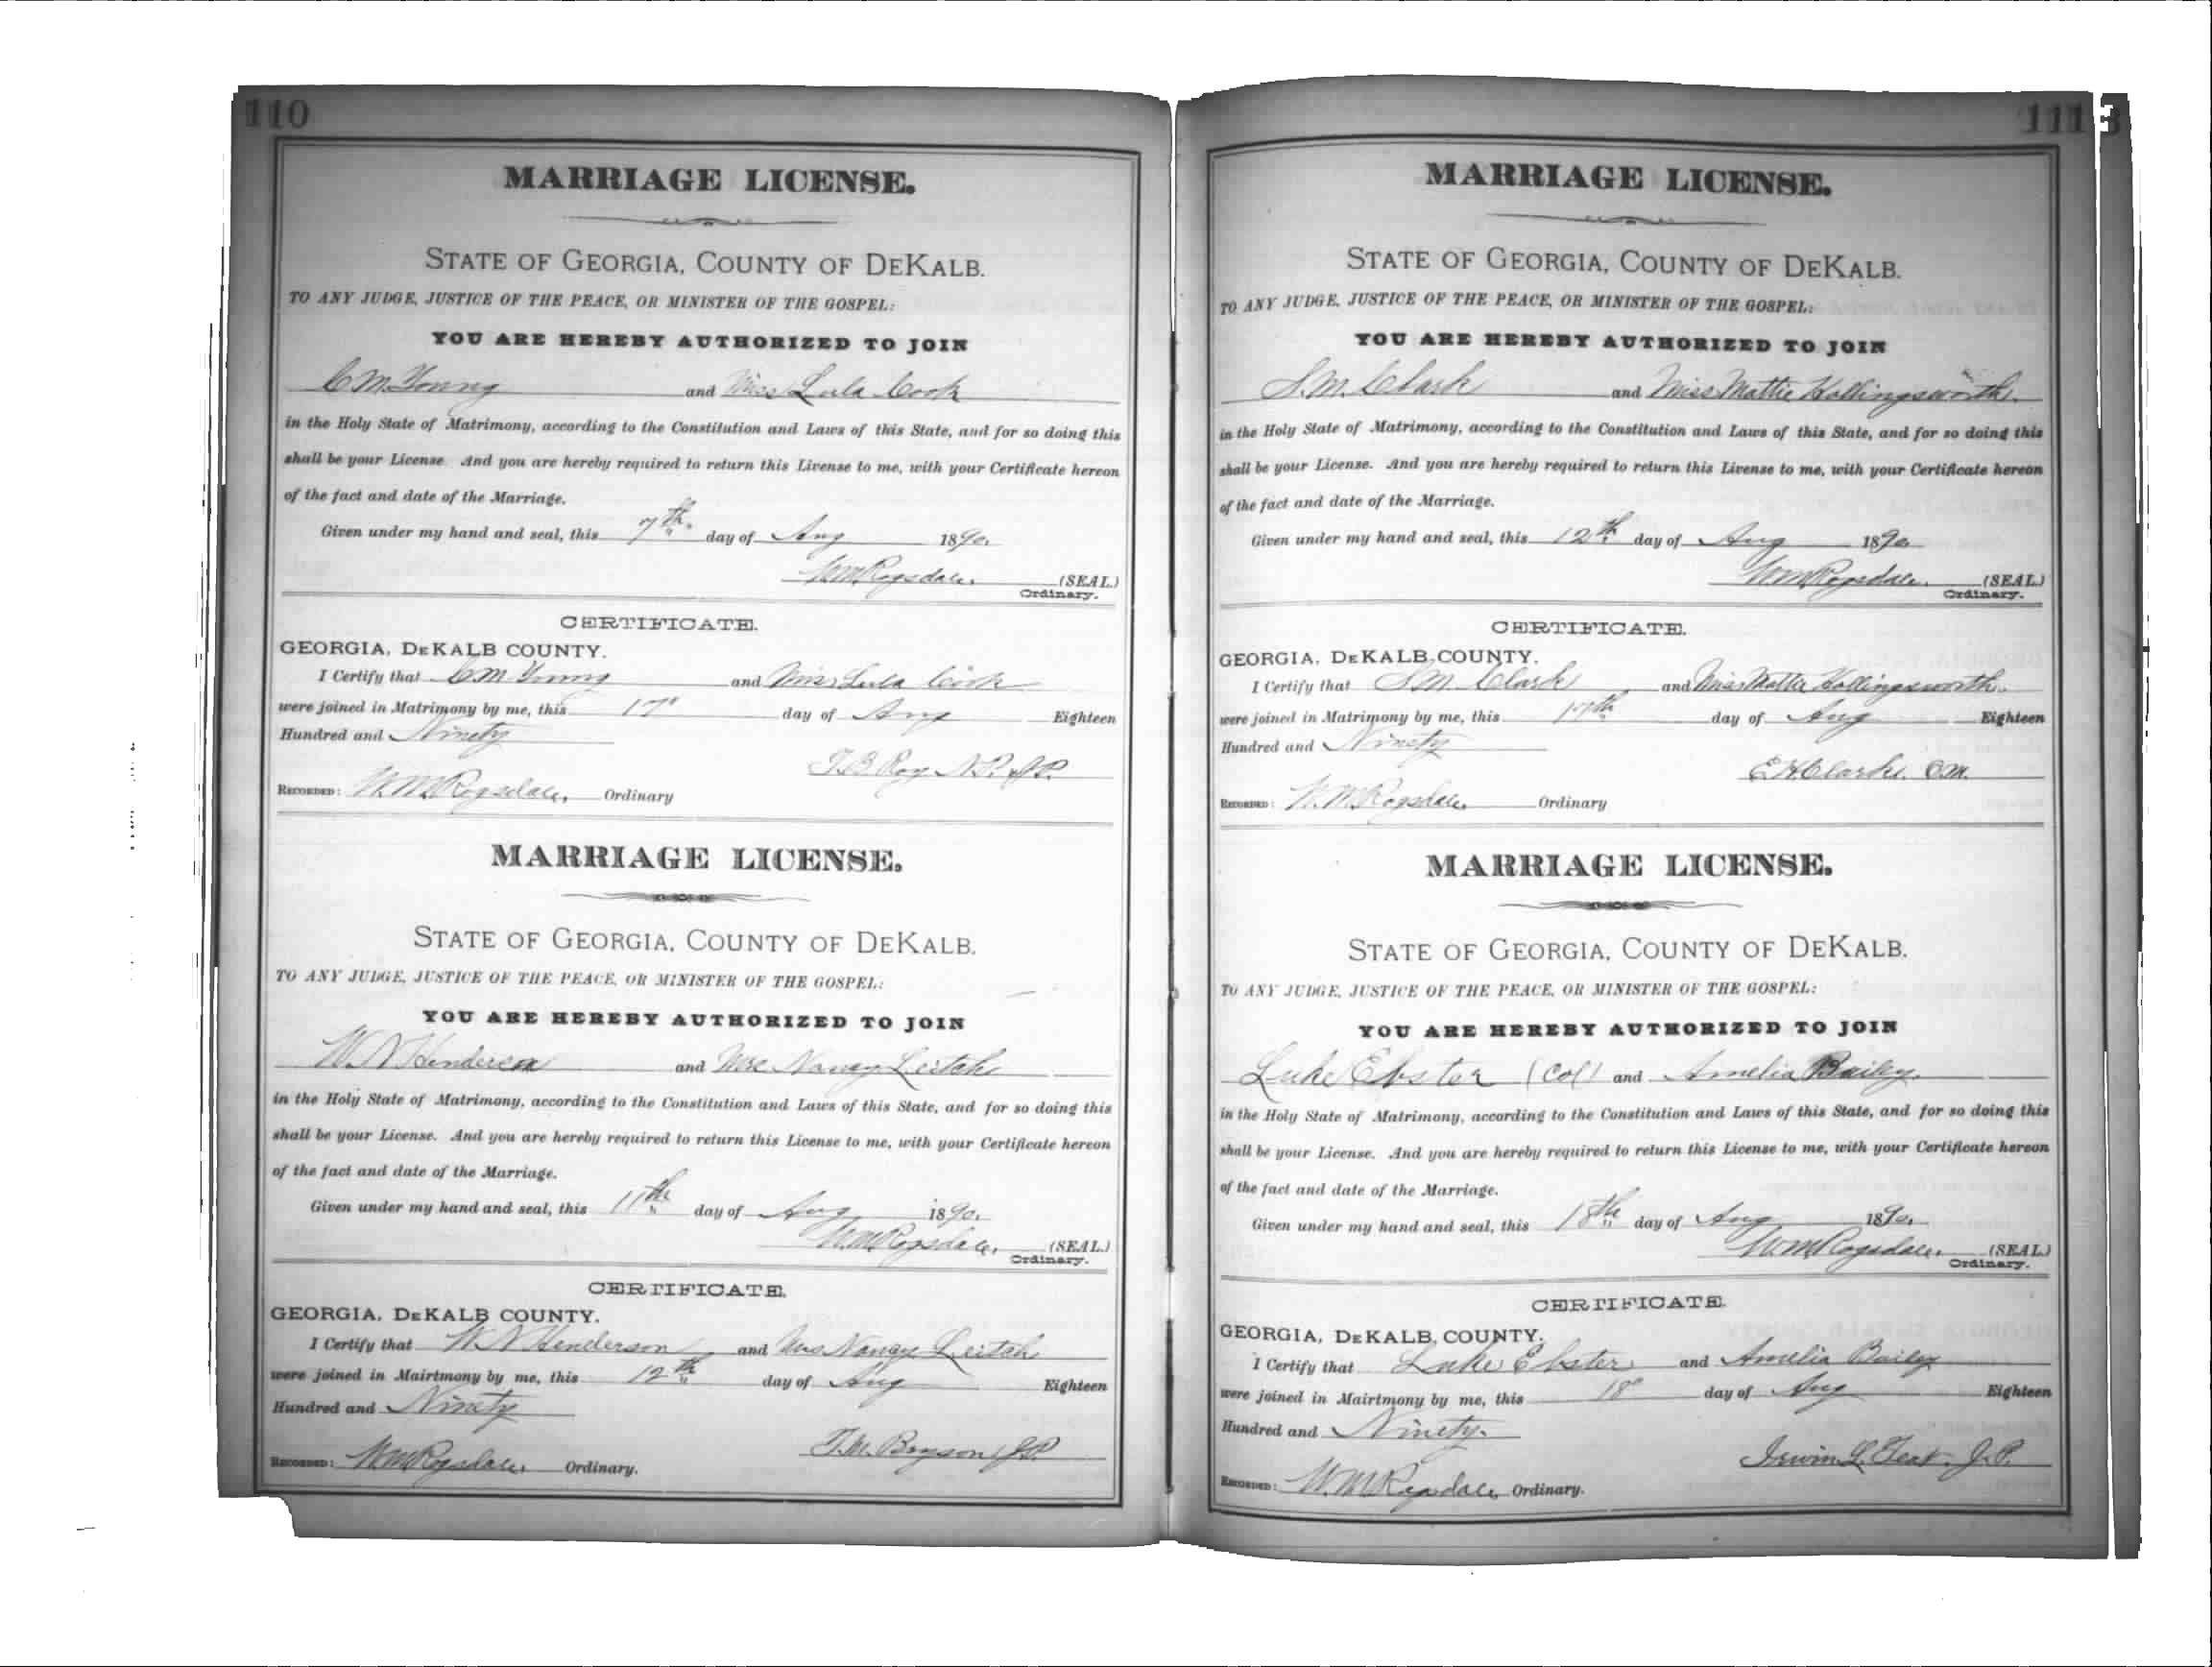 110
MARRIAGE LICENSE.
STATE OF GEORGIA, COUNTY OF DEKALB.
TO ANY JUDGE, JUSTICE OF THE PEACE, OR MINISTER OF THE GOSPEL:
YOU ARE HEREBY AUTHORIZED TO JOIN
C M Young and Miss Lula Cook
in the Holy State of Matrimony, according to the Constitution and Laws of this State, and for so doing this
shall be your License. And you are hereby required to return this License to me, with your Certificate hereon
of the fact and date of the Marriage.
Given under my hand and seal, this 7th. day of Aug 1890.
W M Ragsdale, (SEAL.)
Ordinary.
CERTIFICATE.
GEORGIA, DEKALB COUNTY.
I Certify that C M Young and Miss Lula Cook
were joined in Matrimony by me, this 17" day of Aug Eighteen
Hundred and Ninety
T. B. Roy N.P. JP.
RECORDED: W. M. Ragsdale, Ordinary
MARRIAGE LICENSE.
STATE OF GEORGIA, COUNTY OF DEKALB.
TO ANY JUDGE, JUSTICE OF THE PEACE, OR MINISTER OF THE GOSPEL:
YOU ARE HEREBY AUTHORIZED TO JOIN
W. N Henderson and Mrs Nancy
in the Holy State of Matrimony, according to the Constitution and Laws of this State, and for so doing this
shall be your License. And you are hereby required to return this License to me, with your Certificate hereon
of the fact and date of the Marriage.
Given under my hand and seal, this 11th day of Aug 1890.
W. M. Ragsdale, (SEAL.)
Ordinary.
CERTIFICATE.
GEORGIA, DEKALB COUNTY.
I Certify that W N Henderson and Mrs Nancy
were joined in Mairtmony by me, this 12th day of Aug Eighteen
Hundred and Ninety
T. M. Bryson JP.
RECORDED: W M Ragsdale, Ordinary.
111
3
MARRIAGE LICENSE.
STATE OF GEORGIA, COUNTY OF DEKALB.
TO ANY JUDGE, JUSTICE OF THE PEACE, OR MINISTER OF THE GOSPEL:
YOU ARE HEREBY AUTHORIZED TO JOIN
S. M. Clark and Miss Mattie Hollingsworth.
in the Holy State of Matrimony, according to the Constitution and Laws of this State, and for so doing this
shall be your License. And you are hereby required to return this License to me, with your Certificate hereon
of the fact and date of the Marriage.
Given under my hand and seal, this 12th day of Aug 1890
W M Ragsdale. (SEAL.)
Ordinary.
CERTIFICATE.
GEORGIA, DEKALB COUNTY.
I Certify that S M Clark and Miss Mattie Hollingsworth.
were joined in Matrimony by me, this 17th day of Aug Eighteen
Hundred and Ninety
E H Clarke. O.M.
RECORDED: W. M. Ragsdale, Ordinary
MARRIAGE LICENSE.
STATE OF GEORGIA, COUNTY OF DEKALB.
TO ANY JUDGE, JUSTICE OF THE PEACE, OR MINISTER OF THE GOSPEL:
YOU ARE HEREBY AUTHORIZED TO JOIN
Luke Ebster (Col) and Amelia Bailey.
in the Holy State of Matrimony, according to the Constitution and Laws of this State, and for so doing this
shall be your License. And you are hereby required to return this License to me, with your Certificate hereon
of the fact and date of the Marriage.
Given under my hand and seal, this 18th day of Aug 1890.
W M Ragsdale. (SEAL.)
Ordinary.
CERTIFICATE.
GEORGIA, DEKALB COUNTY.
I Certify that Luke Ebster and Amelia Bailey
were joined in Mairtmony by me, this 18" day of Aug Eighteen
Hundred and Ninety.
Irwin L. J. P.
RECORDED: W. M Ragsdale, Ordinary.